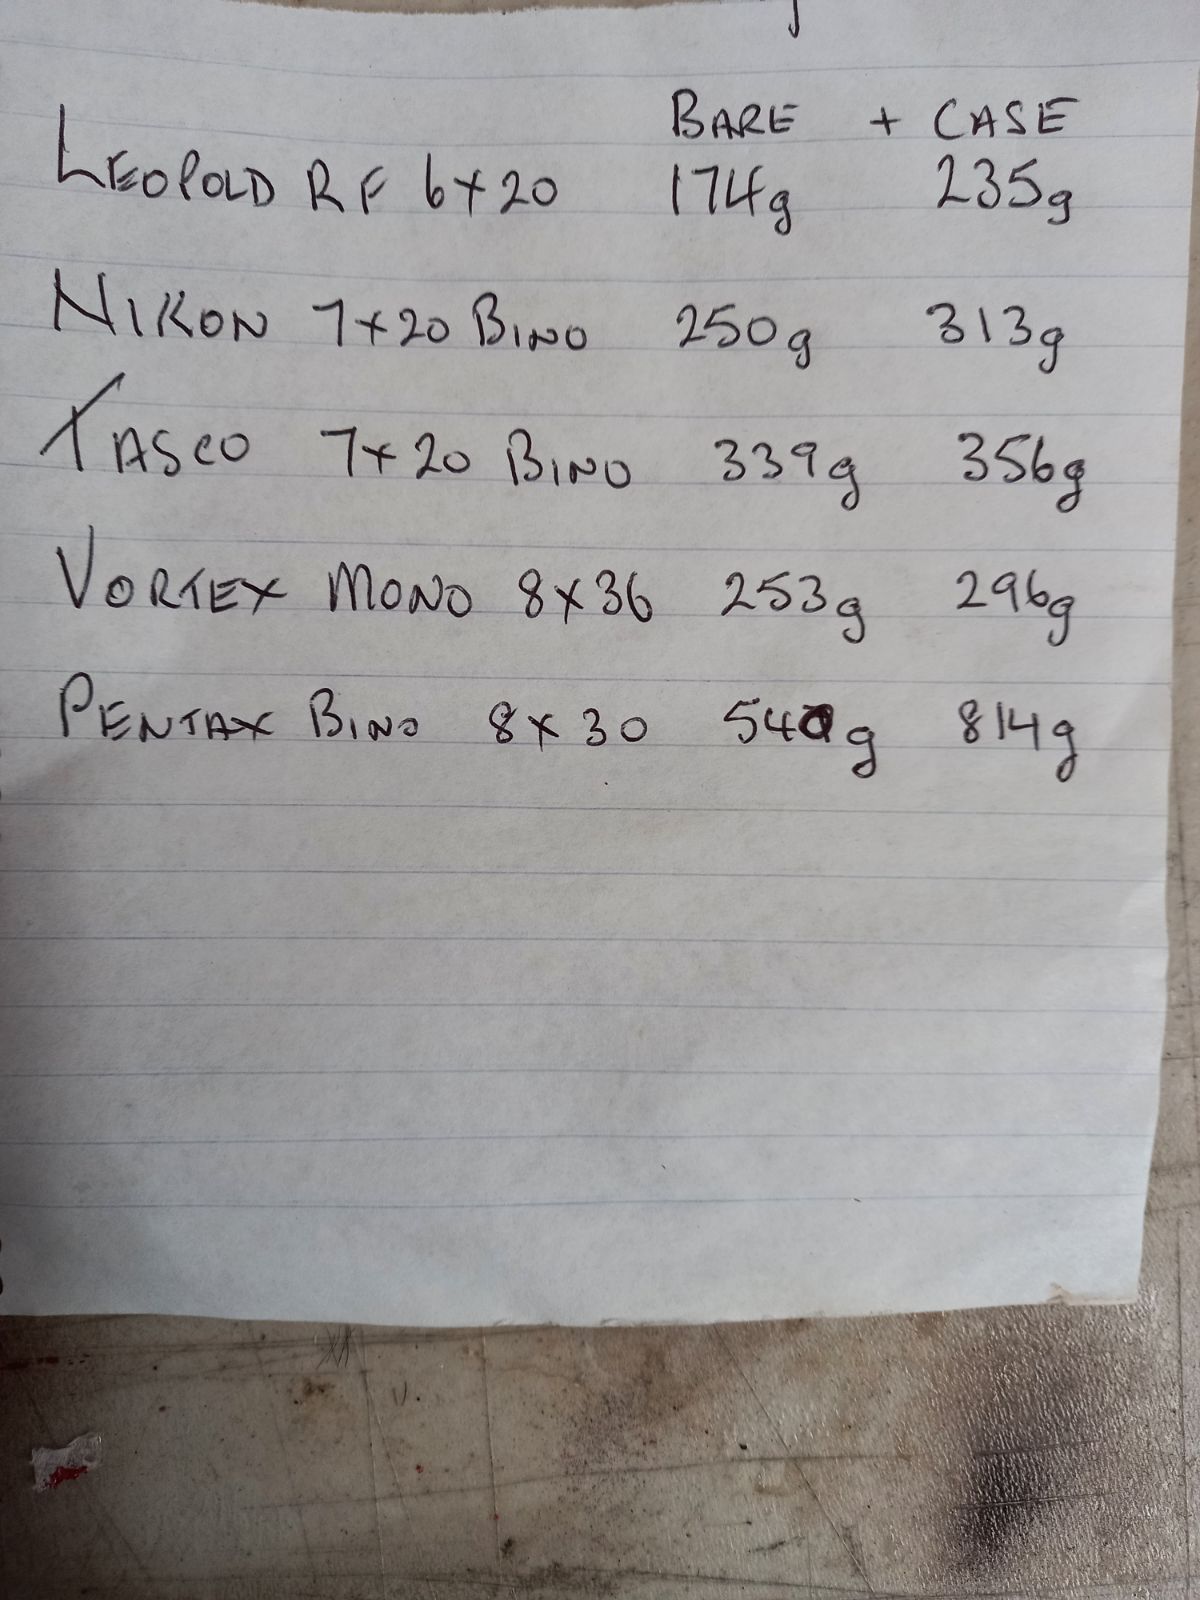 BARE + CASE
LEOPOLD RF 6x20 174g 235g
NIKON 7x20 BINO 250g 313g
TASCO 7x20 BINO 339g 356g
VORTEX MONO 8x36 253g 296g
PENTAX BINO 8x30 814g